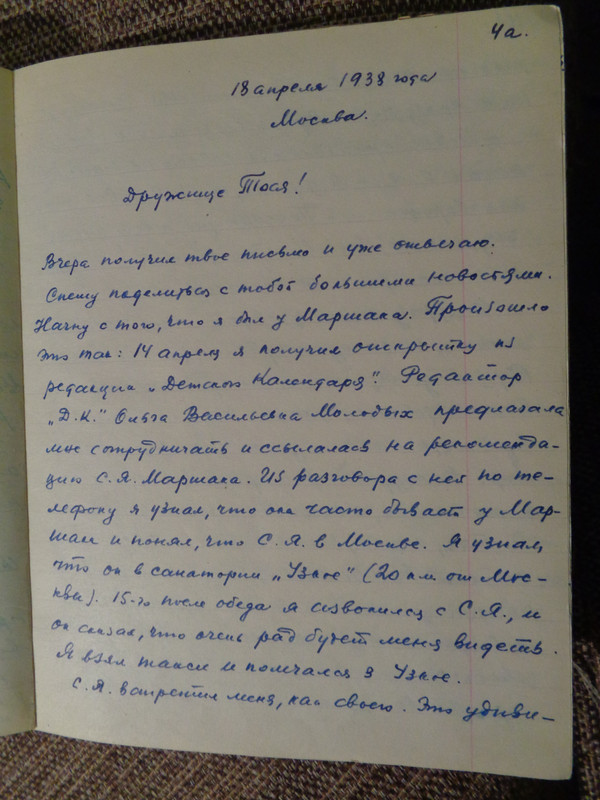 4а.
18 апреля 1938 года
Москва.
Дружище Тося!
Вчера получил твое письмо и уже отвечаю.
Спешу поделиться с тобой большими новостями.
Начну с того, что я был у Маршака. Произошло
это так: 14 апреля я получил открытку из
редакции „Детского Календаря". Редактор
„Д.К." Ольга Васильевна Молодых предлагала
мне сотрудничать и ссылалась на рекоменда-
цию С.Я. Маршака. Из разговора с ней по те-
лефону я узнал, что она часто бывает у Мар-
шака и понял, что С.Я. в Москве. Я узнал,
что он в санатории „Узкое" (20 км. от Мос-
квы). 15-го после обеда я созвонился с С.Я., и
он сказал, что очень рад будет меня видеть.
Я взял такси и помчался в Узкое.
С.Я. встретил меня, как своего. Это удиви-